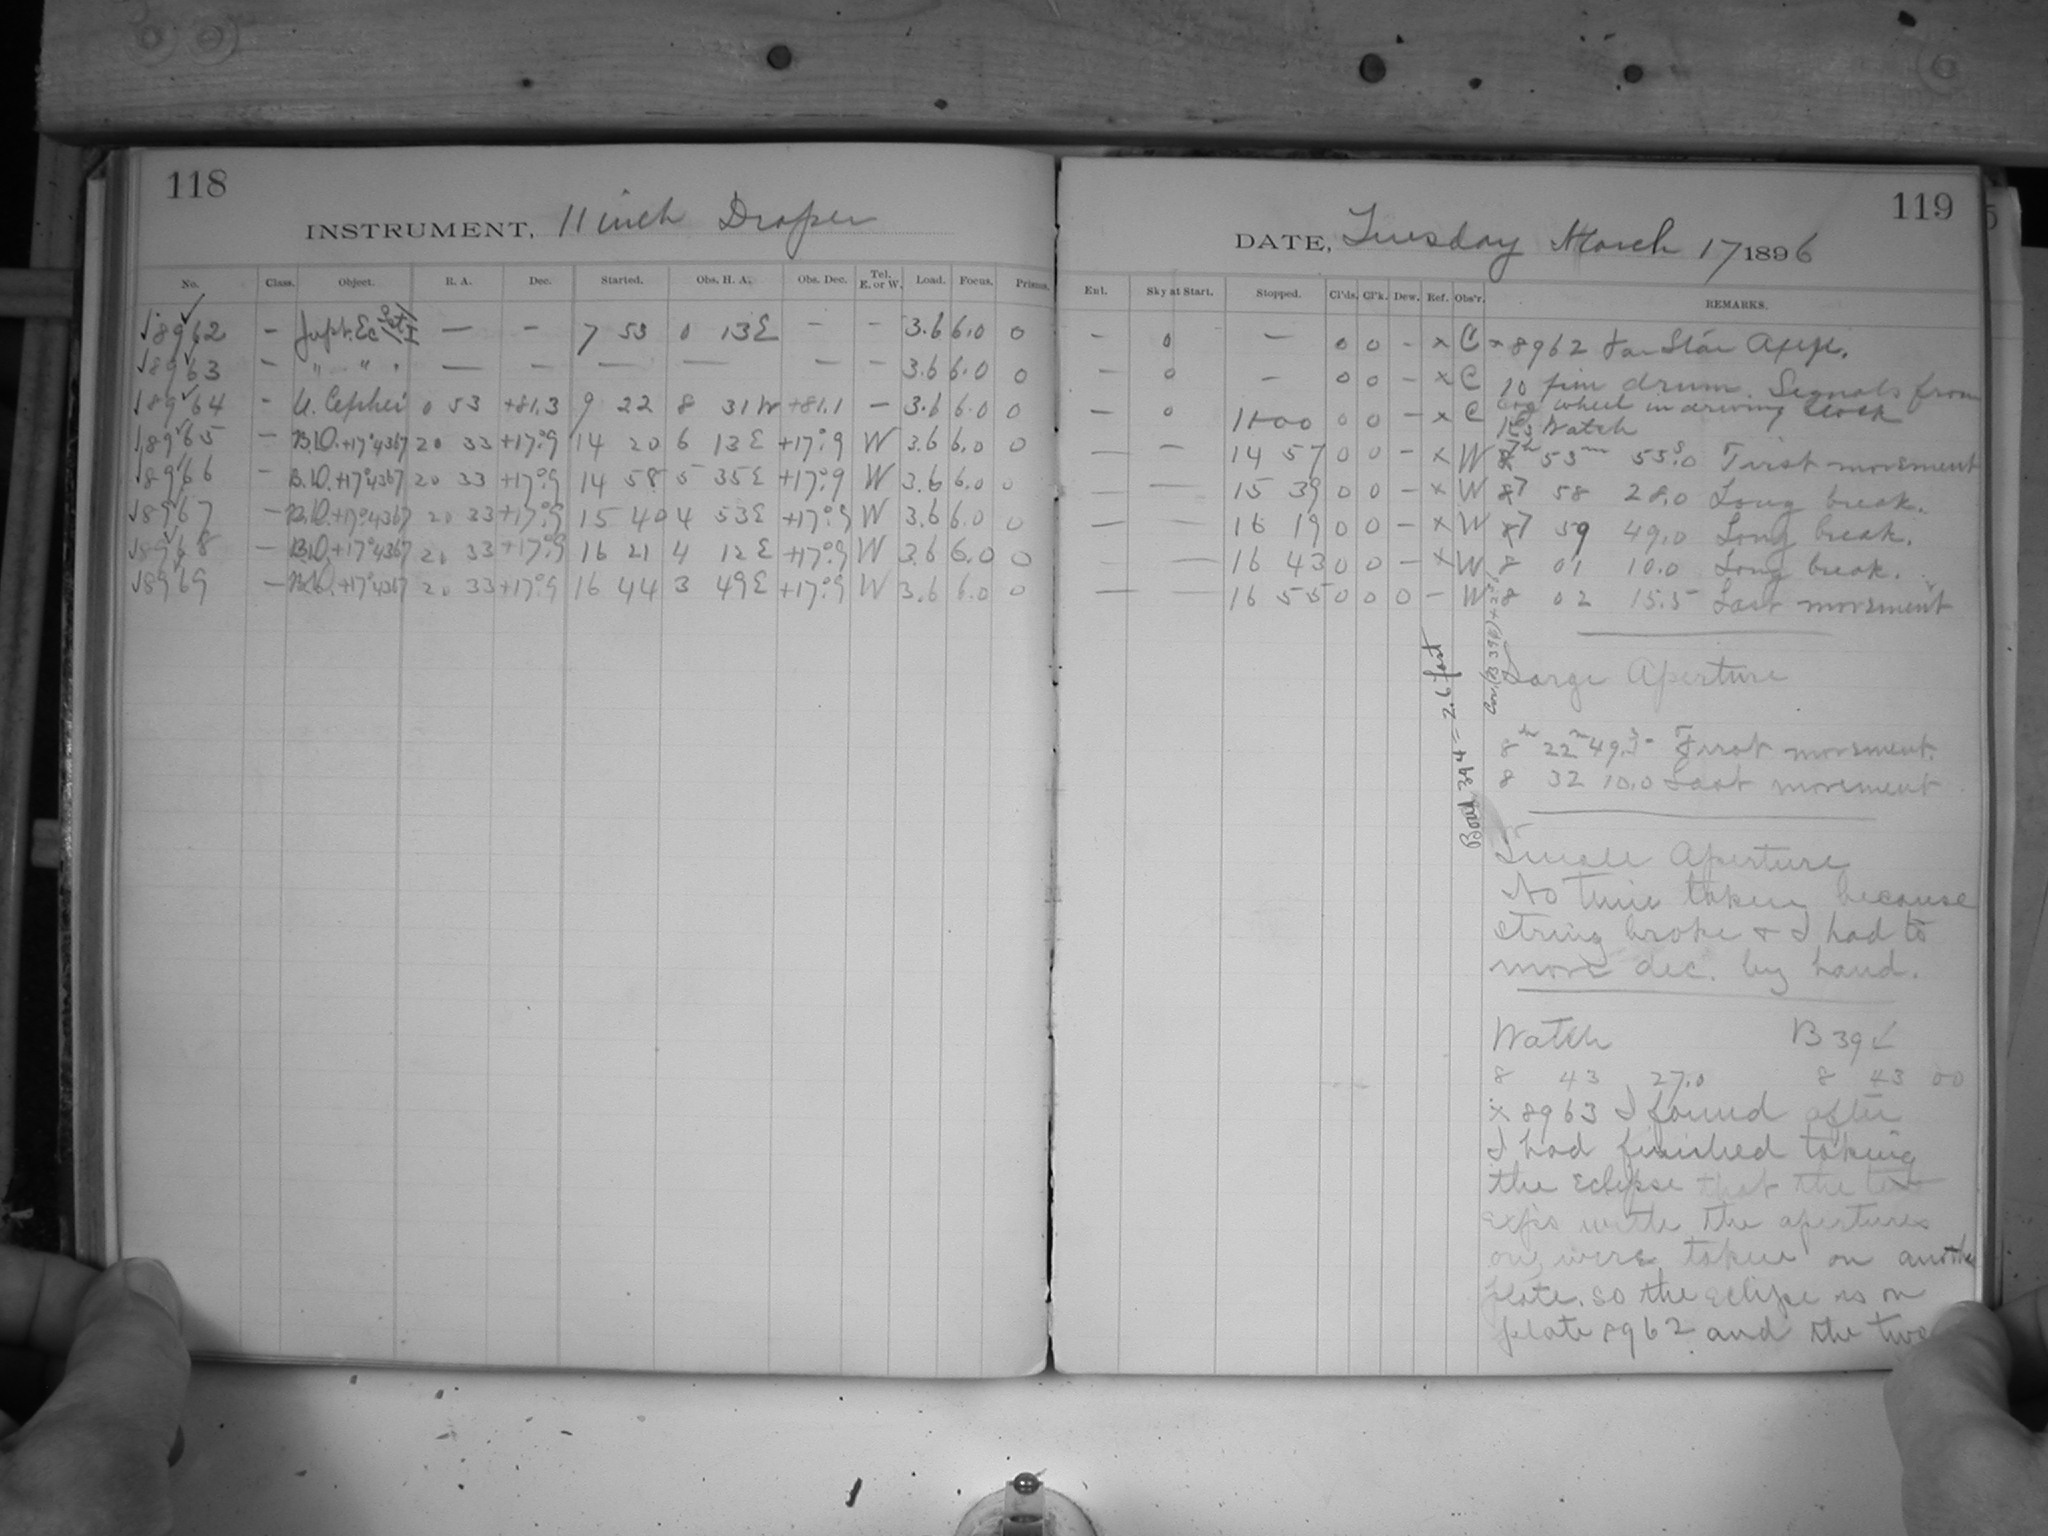 118
INSTRUMENT, 11 inch Draper
No. Class. Object. R. A. Dec. Started. Obs. H. A. Obs. Dec. Tel. E. or W. Load. Focus. Prisms.
18962 – Jupt. Ec Sat I — – 7 53 0 13E – – 3.6 6.0 0
18963 – " " " — — — — — – 3.6 6.0 0
18964 – U. Cephei 0 53 +81.3 9 22 8 31W +81.1 – 3.6 6.0 0
18965 – B.D.+17°4367 20 33 +17°.9 14 20 6 13E +17°.9 W 3.6 6.0 0
18966 – B.D.+17°4367 20 33 +17°.9 14 58 5 35E +17°.9 W 3.6 6.0 0
18967 – B.D.+17°4367 20 33 +17°.9 15 40 4 53E +17°.9 W 3.6 6.0 0
18968 – B.D.+17°4367 20 33 +17°.9 16 21 4 12E +17°.9 W 3.6 6.0 0
18969 – B.D.+17°4367 20 33 +17°.9 16 44 3 49E +17°.9 W 3.6 6.0 0
119
DATE, Tuesday March 17 1896
Enl. Sky at Start. Stopped. Cl'ds. Cl'k. Dew. Ref. Obs'r. REMARKS.
– 0 – 0 0 – x C
– 0 – 0 0 – x C
– 0 11 00 0 0 – x C
— — 14 57 0 0 – x W
— — 15 39 0 0 – x W
— — 16 19 0 0 – x W
— — 16 43 0 0 – x W
— — 16 55 0 0 0 – W
x 8962 Star App.
10 pin drum. Signals from
wheel in driving clock
Watch
7h 53m 55s.0 First movement
7 58 28.0 Long break.
7 59 49.0 Long break.
8 01 10.0 Long break.
8 02 15.5 Last movement
Bond 394 = 2.6 fast
Large Aperture
8h 22m 49.5 First movement.
8 32 10.0 Last movement
Small Aperture
No time taken because
string broke & I had to
move dec. by hand.
Watch B 394
8 43 27.0 8 43 00
x 8963 I found after
I had finished taking
the Eclipse that the two
exps with the apertures
on, were taken on another
plate. so the eclipse is on
plate 8962 and the two